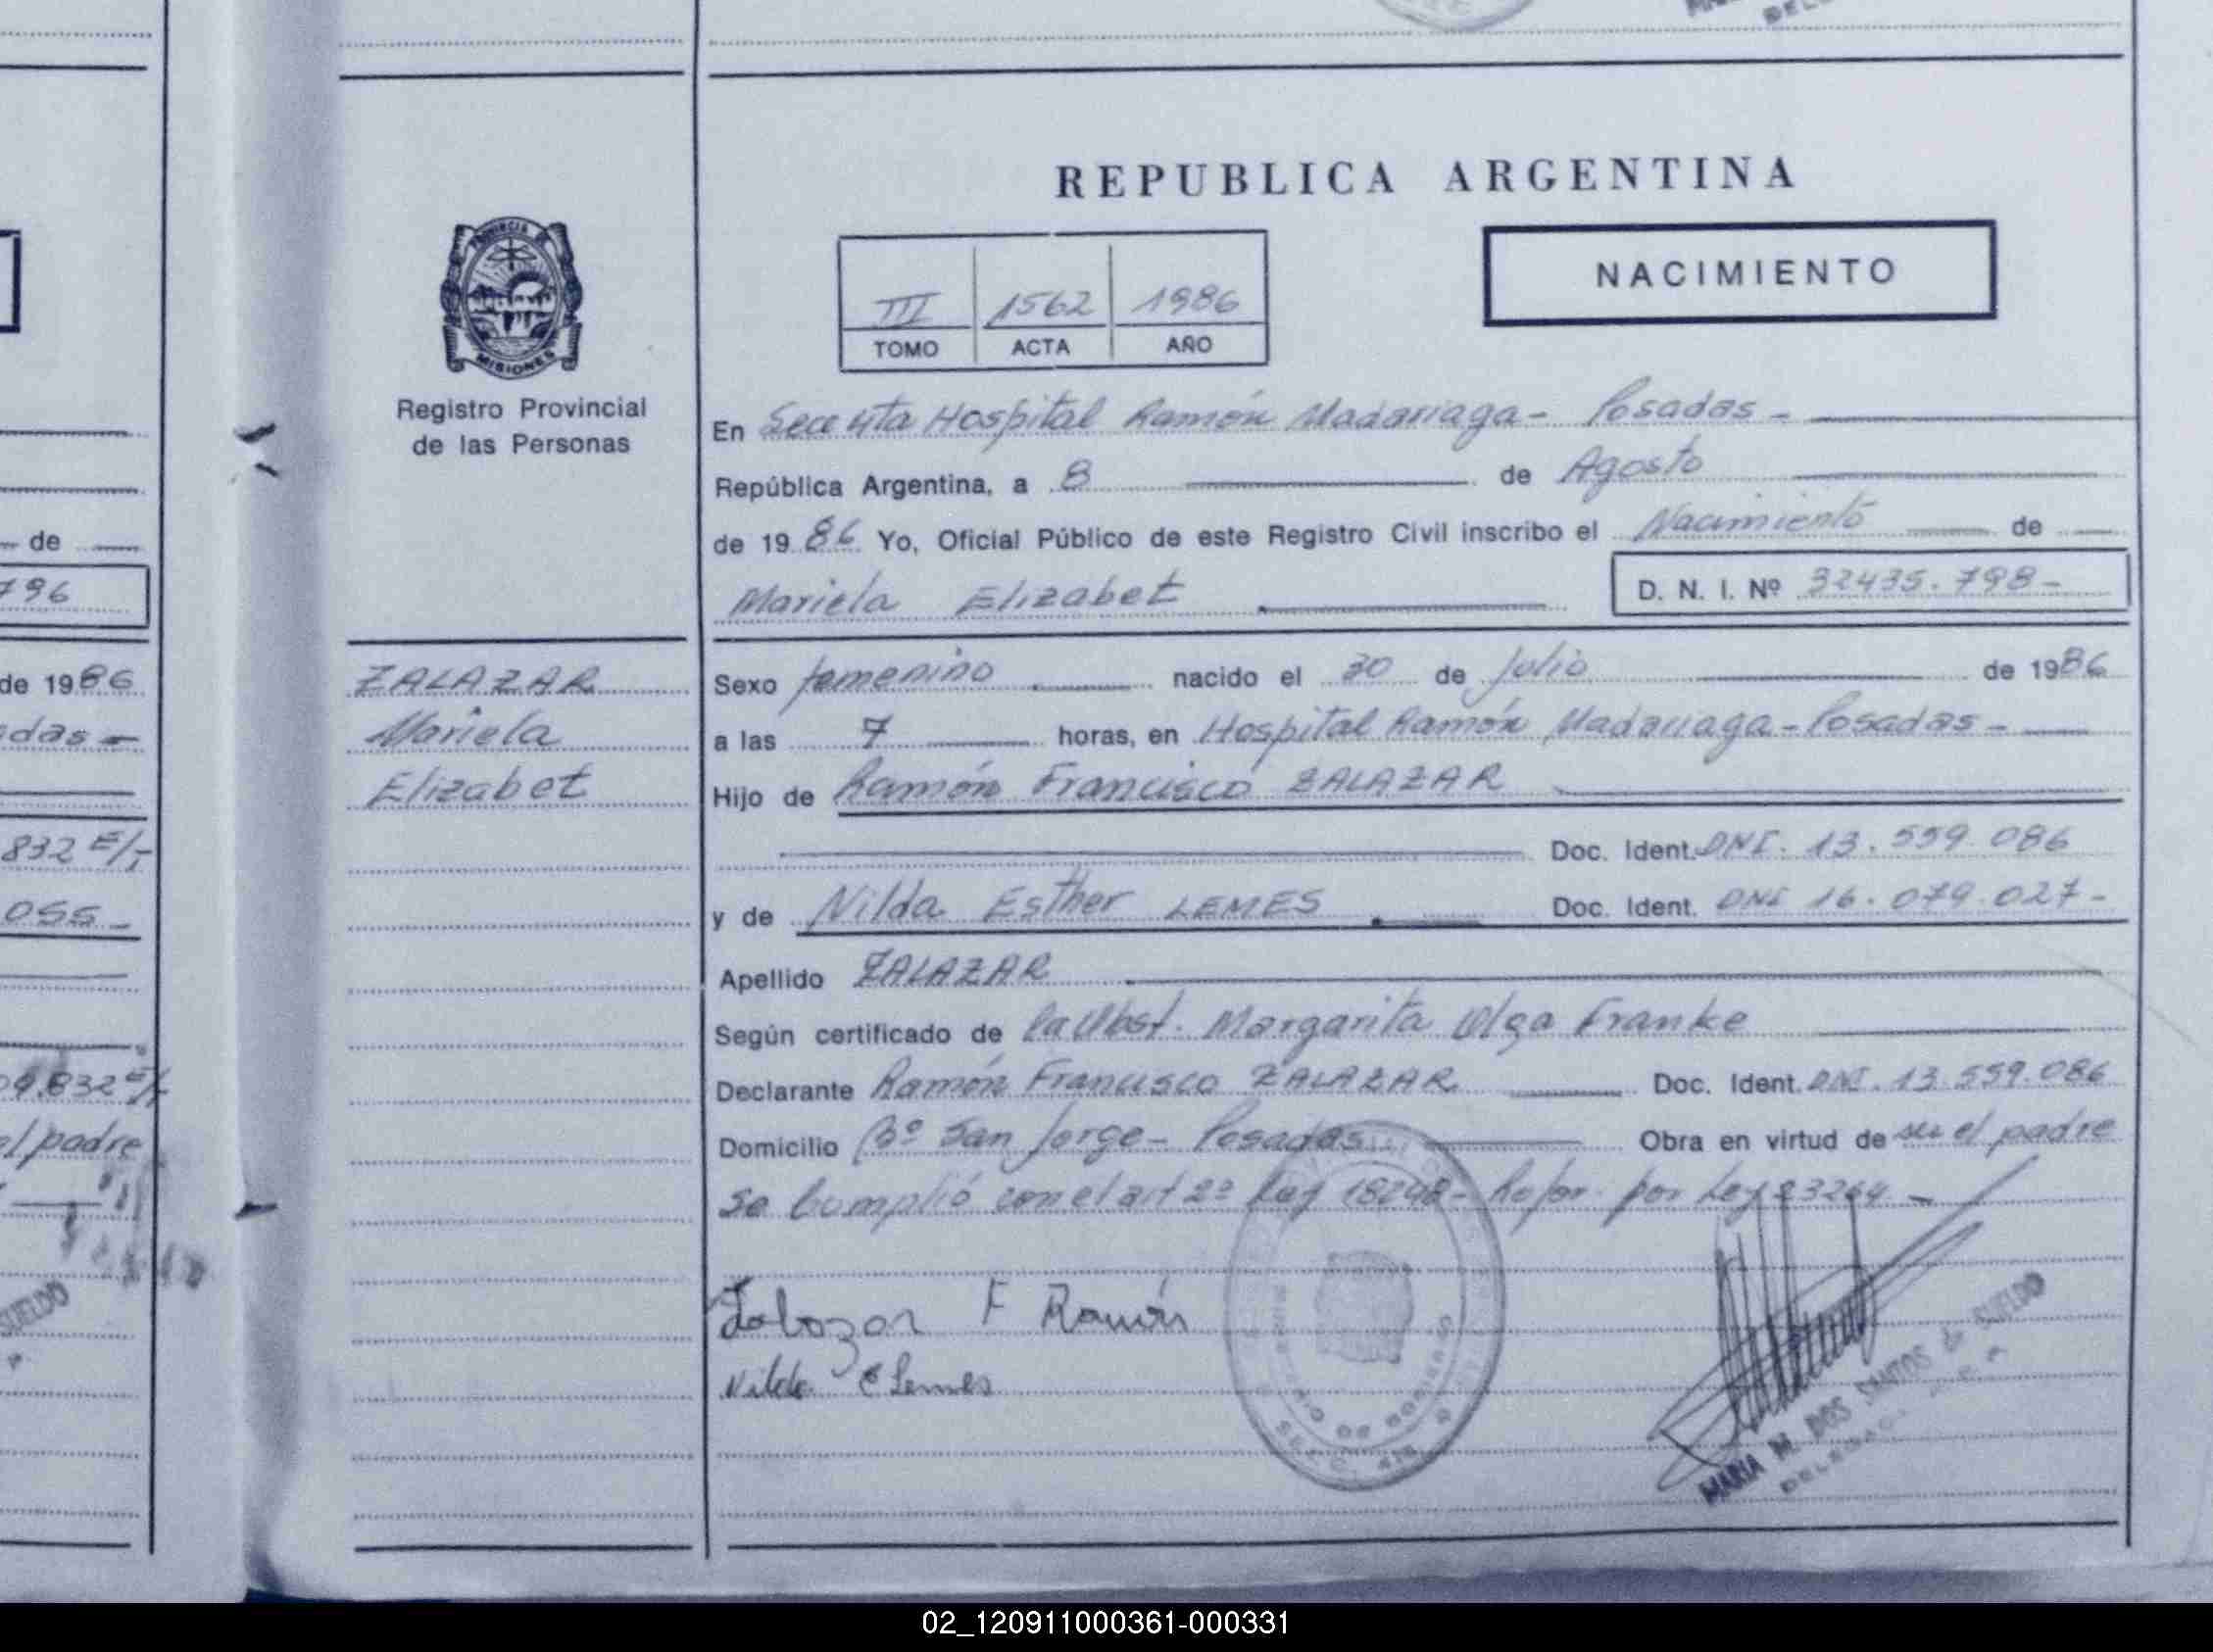 REPUBLICA ARGENTINA
NACIMIENTO
III 1562 1986
TOMO ACTA AÑO
PROVINCIA DE
MISIONES
Registro Provincial
de las Personas
En Secc 4ta Hospital Ramón Madariaga - Posadas -
República Argentina, a 8 de Agosto
de 1986 Yo, Oficial Público de este Registro Civil inscribo el Nacimiento de
Mariela Elizabet D. N. I. Nº 32435.798-
ZALAZAR
Mariela
Elizabet
Sexo femenino nacido el 30 de Julio de 1986
a las 7 horas, en Hospital Ramón Madariaga - Posadas -
Hijo de Ramón Francisco ZALAZAR
Doc. Ident. DNI. 13.559.086
y de Nilda Esther LEMES Doc. Ident. DNI 16.079.027-
Apellido ZALAZAR
Según certificado de la Obst. Margarita Olga Franke
Declarante Ramón Francisco ZALAZAR Doc. Ident. DNI. 13.559.086
Domicilio Bº San Jorge - Posadas Obra en virtud de ser el padre
Se Cumplió con el art 2º Ley 18248 - Refor. por Ley 23264 -
Zalazar F Ramón
Nilda E Lemes
MARIA M. DOS SANTOS de SUELDO
de
796
de 1986
adas -
832 E/I
055 -
09.832 E/I
el padre
SUELDO
02_120911000361-000331